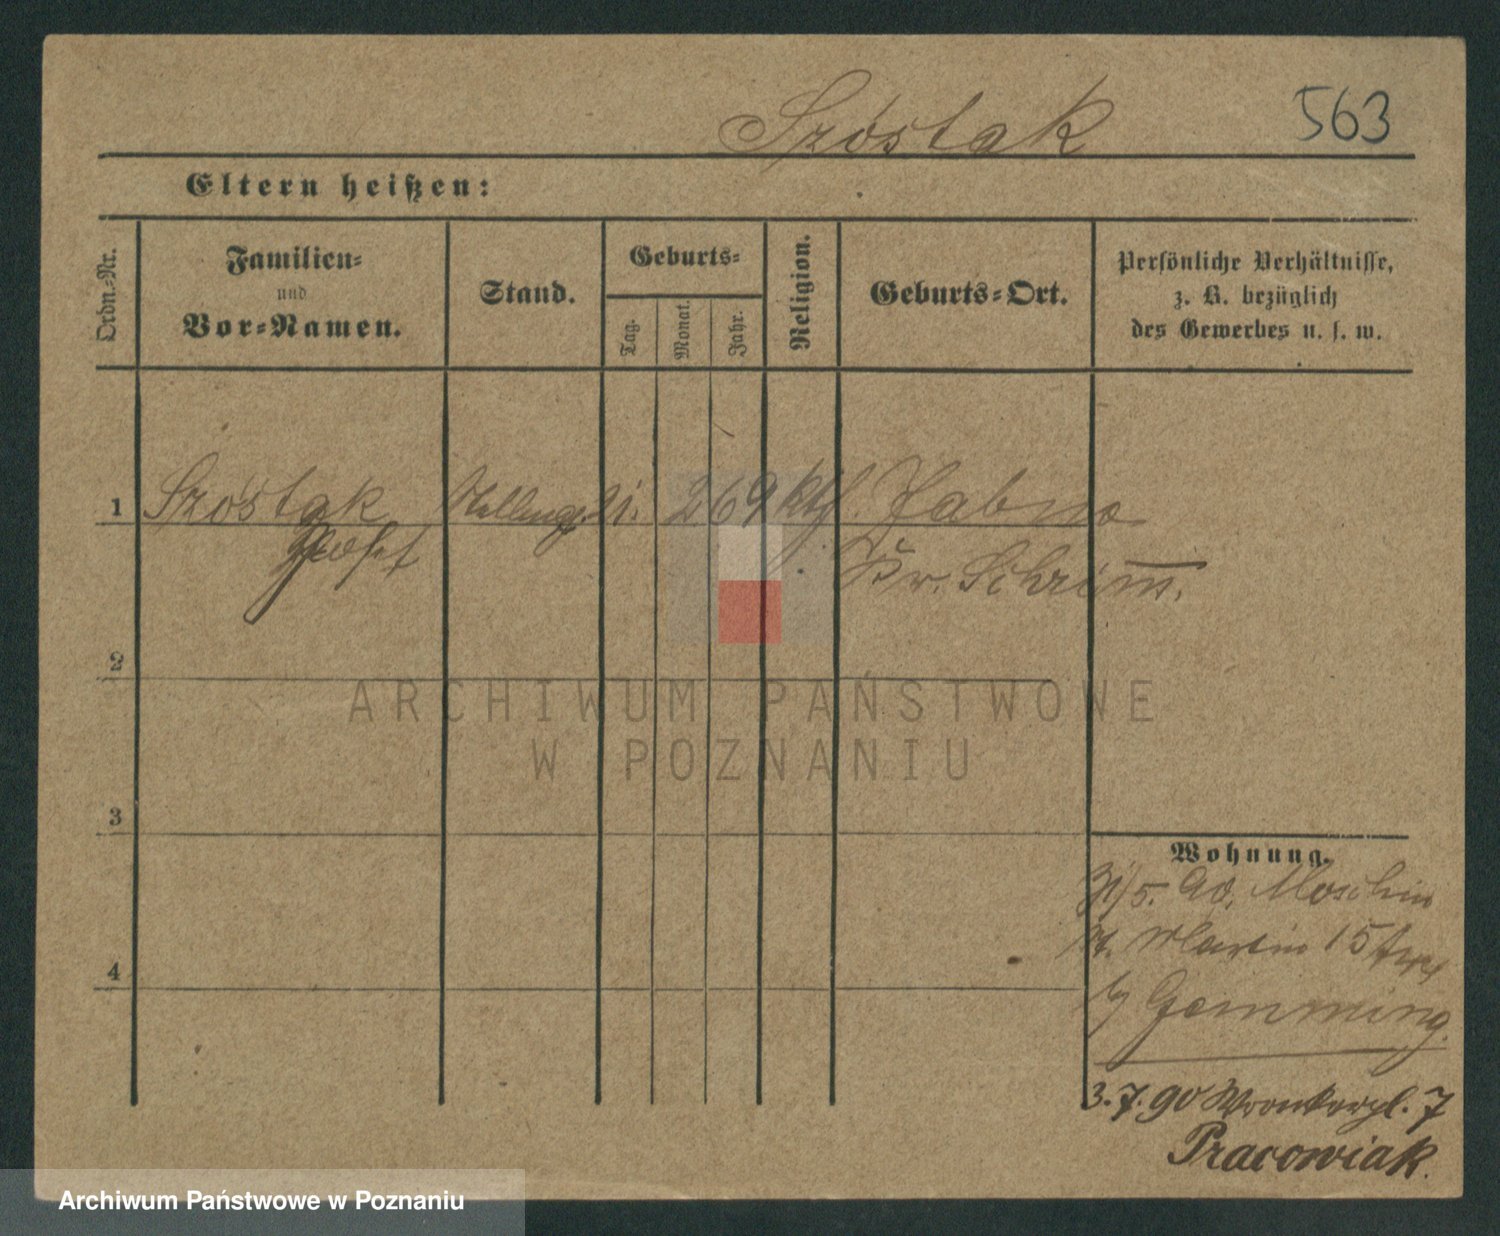 Szóstak 563
Eltern heißen:
Ordn.-Nr.
Familien-
und
Vor-Namen.
Stand.
Geburts-
Tag.
Monat.
Jahr.
Religion.
Geburts-Ort.
Persönliche Verhältnisse,
z. B. bezüglich
des Gewerbes u. s. w.
1 Szóstak 21. 2 69 kth. Jabno
Josef Kr. Schrimm.
2
ARCHIWUM PAŃSTWOWE
W POZNANIU
3
Wohnung.
31/5. 90. Moschin
St. Martin 15
by Gemming.
4
3.7.90 Wronkerpl. 7
Pracowiak.
Archiwum Państwowe w Poznaniu